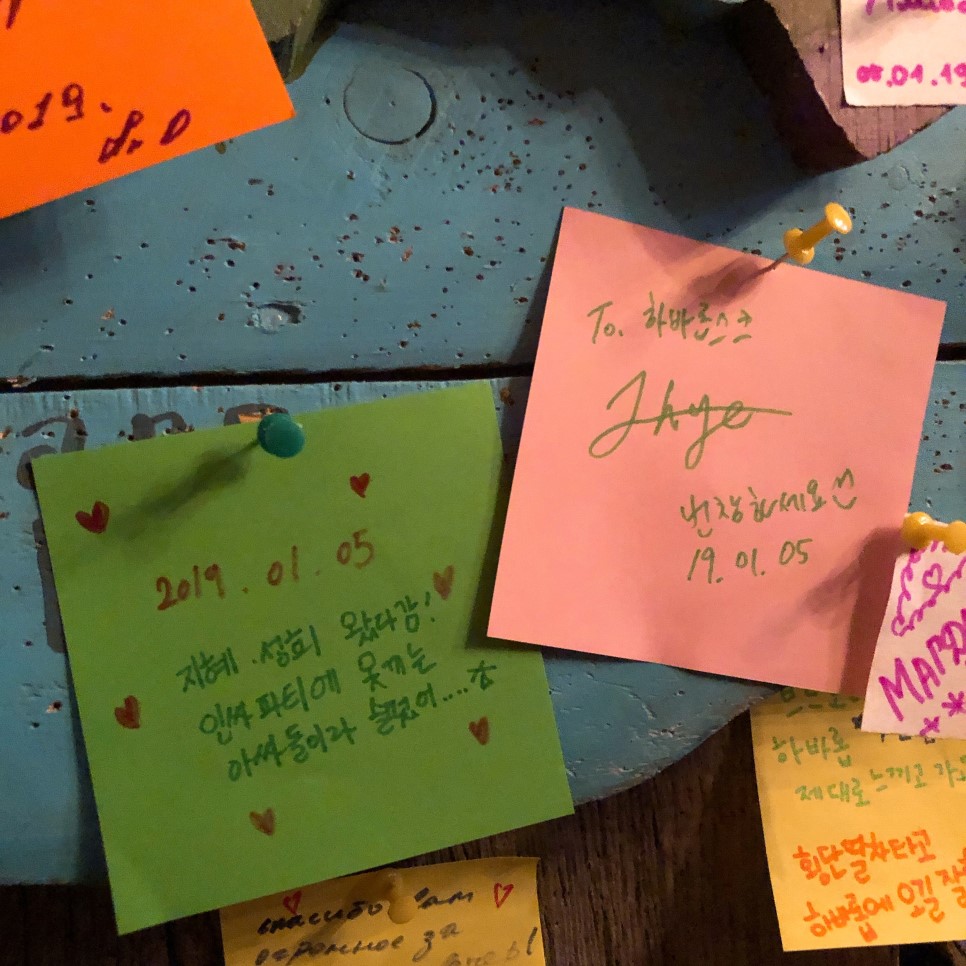 019.
08.01.19
To. 하바롭스크
Jhye
번창하세요
19. 01. 05
2019. 01. 05
지혜. 성희 왔다감!
인싸 파티에 못끼는
아싸들이라 슬펐어....ㅎ
MAPD
하바롭
제대로 느끼고 가요
횡단열차타고
하바롭에 오길 잘
спасибо Вам
огромное за